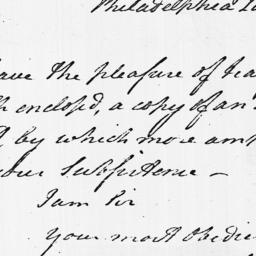 Philadelphia
have the pleasure of
enclosed, a copy of an
by which more am
your Subsistence —
I am Sir
Your most Obedie